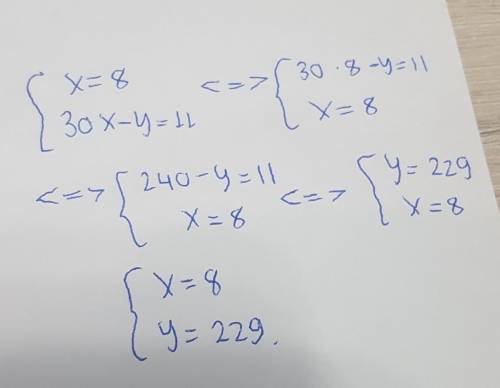 { x = 8 <=> { 30 · 8 - y = 11
30x - y = 11 x = 8
<=> { 240 - y = 11 <=> { y = 229
x = 8 x = 8
{ x = 8
y = 229.